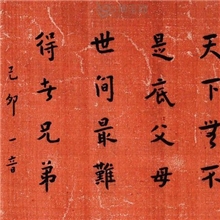 天下無不
是底父母
世間最難
得者兄弟
己卯一音